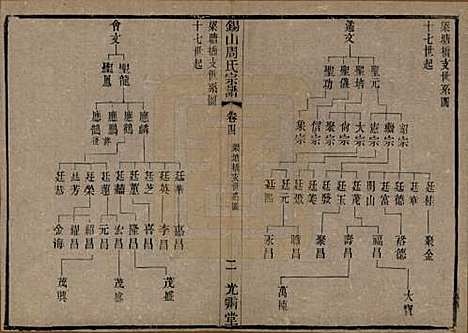 梁塘橋支世系圖
十七世起
遙文
聖元
聖培
聖儀
聖功
紹宗
繼宗
憲宗
大宗
向宗
聚宗
信宗
象宗
廷桂
廷華
廷富
廷貴
明山
廷茂
廷玉
廷發
廷美
廷燬
廷元
廷熙
聚金
裕德
福昌
壽昌
聚昌
瞻昌
永昌
大寶
萬棟
錫山周氏宗譜
卷四
梁塘橋支世系圖
二
光霽堂
梁塘橋支世系圖
十七世起
會文
聖龍
聖鳳
應麟
應鶴
應鵬
應鶴
廷華
廷英
廷芝
廷蕙
廷蘭
廷蓮
廷榮
廷芳
廷基
嘉昌
晉昌
隆昌
宏昌
元昌
紹昌
耀昌
金海
茂盛
茂盛
茂興